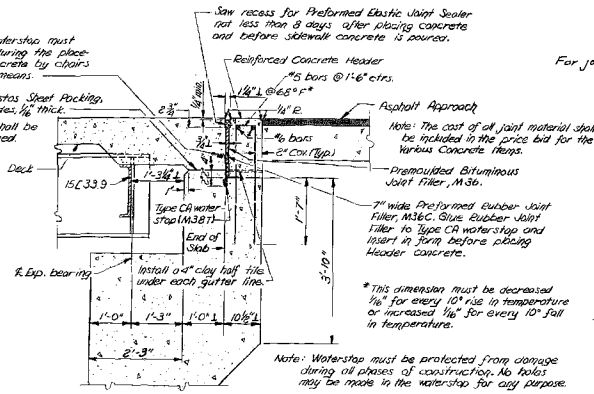 Saw recess for Preformed Elastic Joint Sealer
not less than 8 days after placing concrete
and before sidewalk concrete is poured.
must
during the place-
by chairs
means.
Reinforced Concrete Header
#5 bars @ 1'-6" ctrs.
1¼"⊥ @ 68°F*
For
¼" R.
2¾"
¼" min.
Sheet Packing,
1/16" thick.
shall be
Asphalt Approach
Note: The cost of all joint material shall
be included in the price bid for the
Various Concrete Items.
#6 bars
2" Cov. (Typ.)
Deck
15[33.9
1'-3¼"⊥
1"
Premoulded Bituminous
Joint Filler, M36.
Type CA water-
stop (M38T)
7" wide Preformed Rubber Joint
Filler, M36C. Glue Rubber Joint
Filler to Type CA waterstop and
Insert in form before placing
Header concrete.
1'-7"
3'-10"
End of
Slab
℄ Exp. bearing
Install a 4" clay half tile
under each gutter line.
* This dimension must be decreased
1/16" for every 10° rise in temperature
or increased 1/16" for every 10° fall
in temperature.
1'-0" 1'-3" 1'-0"⊥ 10½"⊥
2'-3"
Note: Waterstop must be protected from damage
during all phases of construction. No holes
may be made in the waterstop for any purpose.